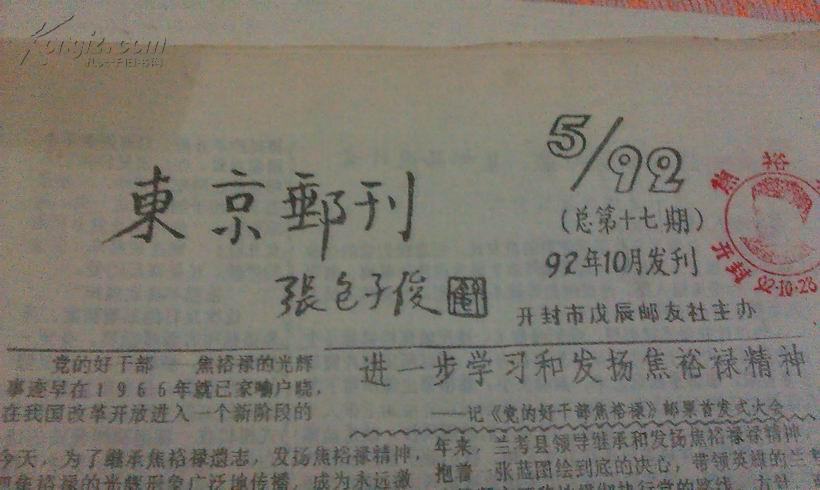 Kongfz.com
東京郵刊
張包子俊
5/92
(总第十七期)
92年10月发刊
开封市戊辰邮友社主办
焦裕
开封 92·10·28
党的好干部 焦裕禄的光辉
事迹早在1966年就已家喻户晓,
在我国改革开放进入一个新阶段的
今天,为了继承焦裕禄遗志,发扬焦裕禄精神,
把焦裕禄的光辉形象广泛地传播,成为永远激
进一步学习和发扬焦裕禄精神
——记《党的好干部焦裕禄》邮票首发式大会
年来,兰考县领导继承和发扬焦裕禄精神,
抱着一张蓝图绘到底的决心,带领英雄的兰